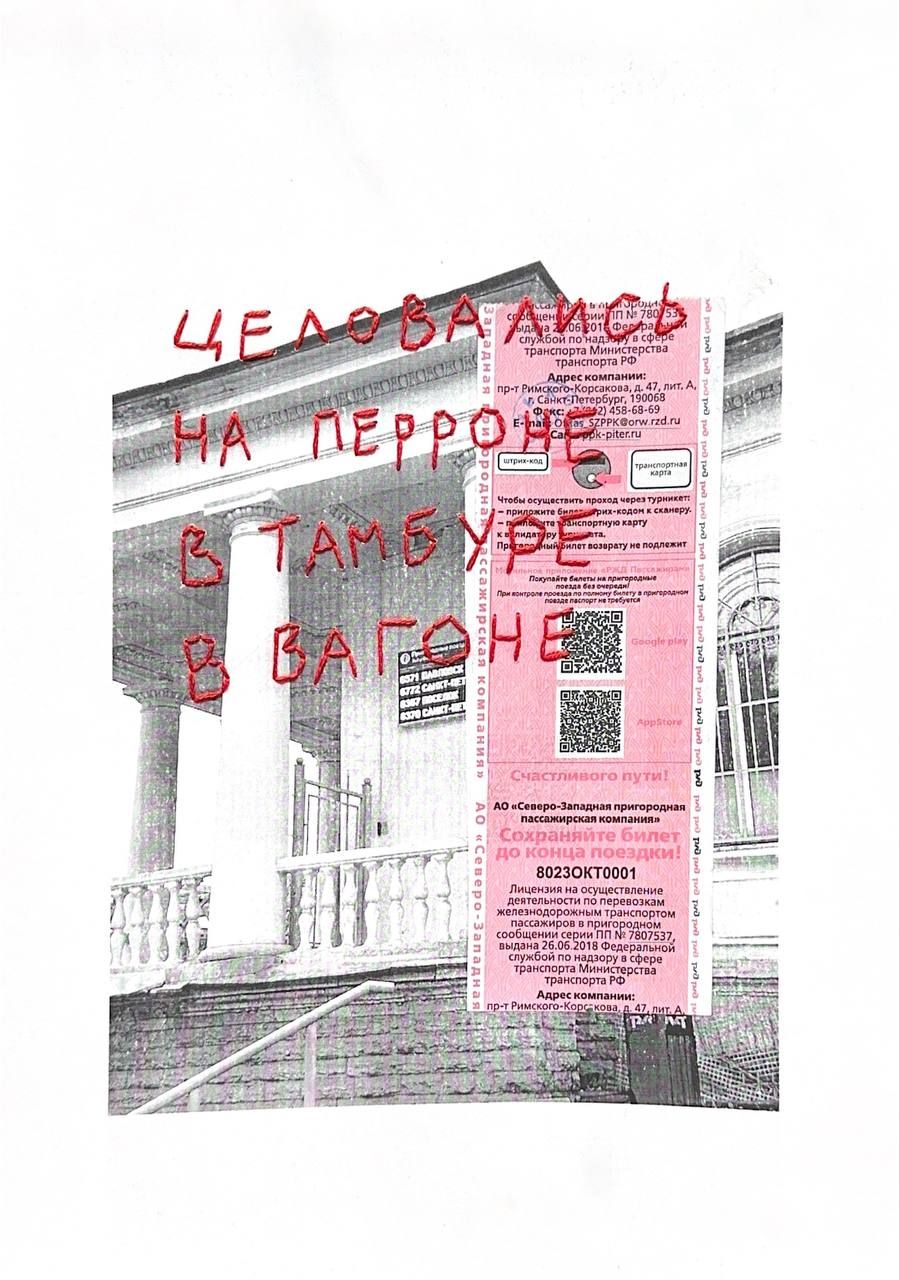 ЦЕЛОВАЛИСЬ
НА ПЕРРОНЕ
В ТАМБУРЕ
В ВАГОНЕ
сообщении серии ПП № 780753
выдана 26.06.2018 Федеральной
службой по надзору в сфере
транспорта Министерства
транспорта РФ
Адрес компании:
пр-т Римского-Корсакова, д. 47, лит. А,
г. Санкт-Петербург, 190068
Факс: (812) 458-68-69
E-mail: _SZPPK@orw.rzd.ru
ppk-piter.ru
штрих-код
транспортная
карта
Чтобы осуществить проход через турникет:
– приложите билет штрих-кодом к сканеру.
– приложите транспортную карту
к валидатору
Пригородный билет возврату не подлежит
Мобильное приложение «РЖД Пассажирам»
Покупайте билеты на пригородные
поезда без очереди!
При контроле проезда по полному билету в пригородном
поезде паспорт не требуется
Google play
AppStore
Счастливого пути!
АО «Северо-Западная пригородная
пассажирская компания»
Сохраняйте билет
до конца поездки!
8023ОКТ0001
Лицензия на осуществление
деятельности по перевозкам
железнодорожным транспортом
пассажиров в пригородном
сообщении серии ПП № 7807537,
выдана 26.06.2018 Федеральной
службой по надзору в сфере
транспорта Министерства
транспорта РФ
Адрес компании:
пр-т Римского-Корсакова, д. 47, лит. А,
Западная пригородная пассажирская компания» АО «Северо-Западная
6371 ПАВЛОВСК
6372 САНКТ-ПЕТ
6370 САНКТ